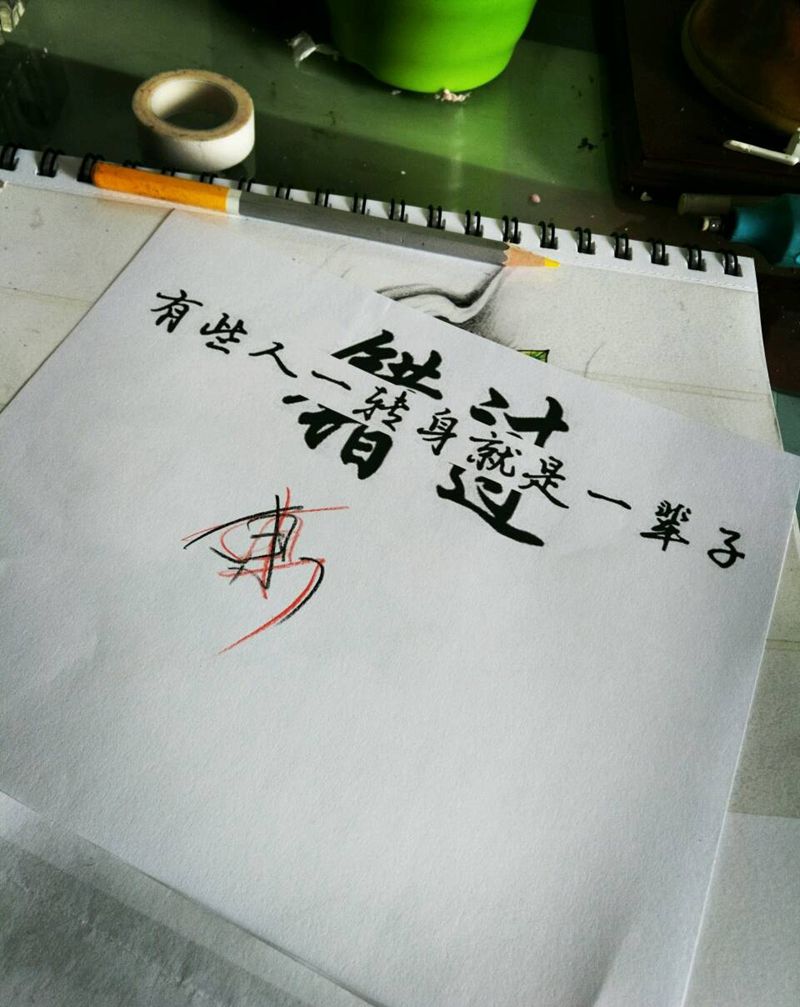 有些人一转身就是一辈子
错过